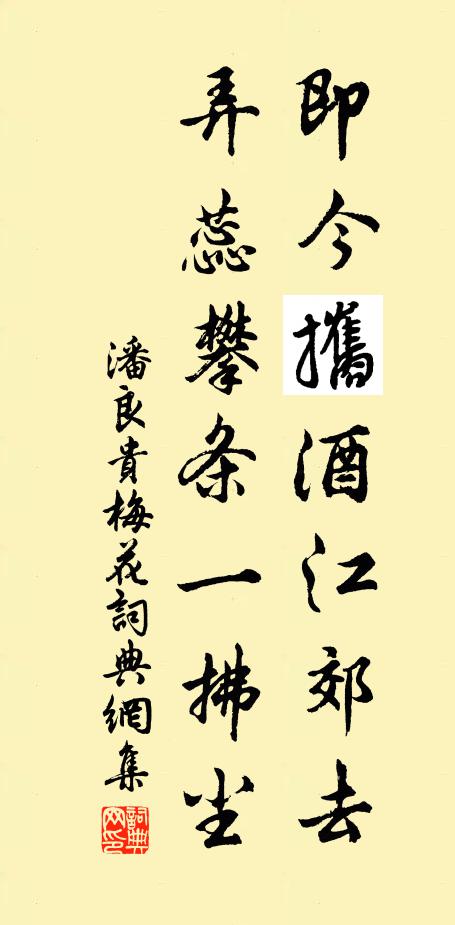 即今攜酒江郊去
弄蕊攀条一拂尘
潘良貴梅花詞典網集
詞典网印